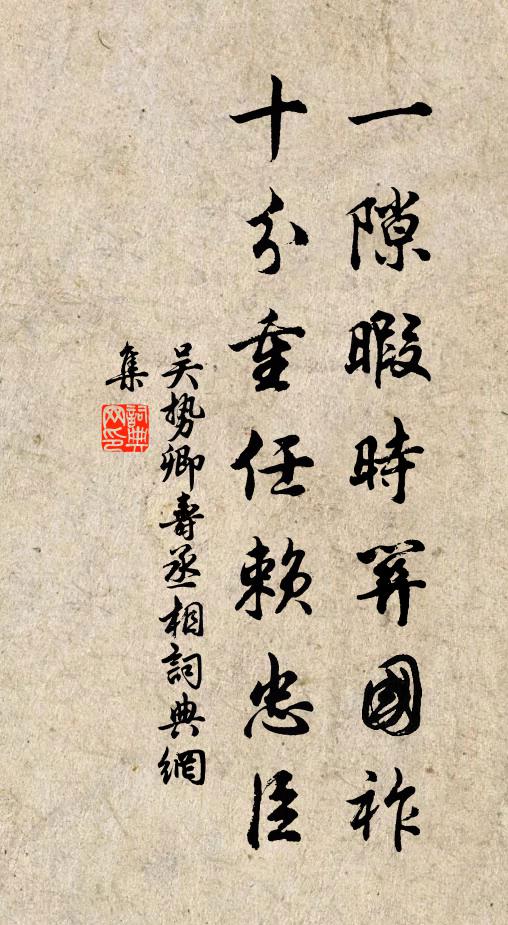 一隙暇時關國祚
十分重任賴忠臣
吴势卿壽丞相詞典網
集
詞典
网印